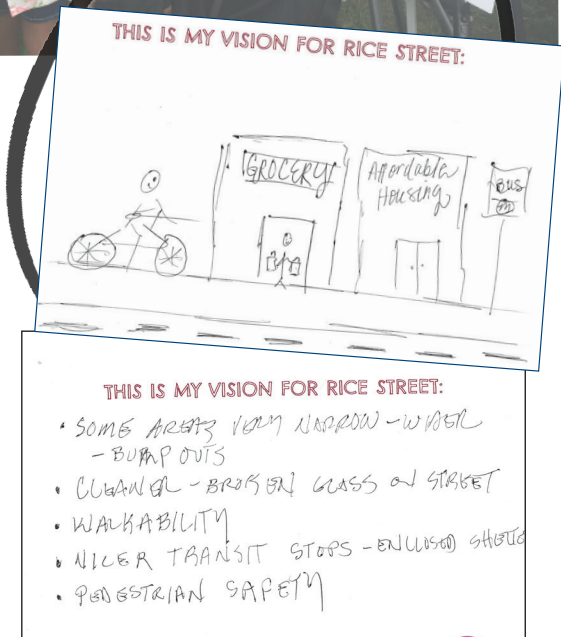 THIS IS MY VISION FOR RICE STREET:
GROCERY
Affordable
Housing
BUS
THIS IS MY VISION FOR RICE STREET:
• SOME AREAS VERY NARROW - WIDER
- BUMP OUTS
• CLEANER - BROKEN GLASS ON STREET
• WALKABILITY
• NICER TRANSIT STOPS - ENCLOSED
• PEDESTRIAN SAFETY